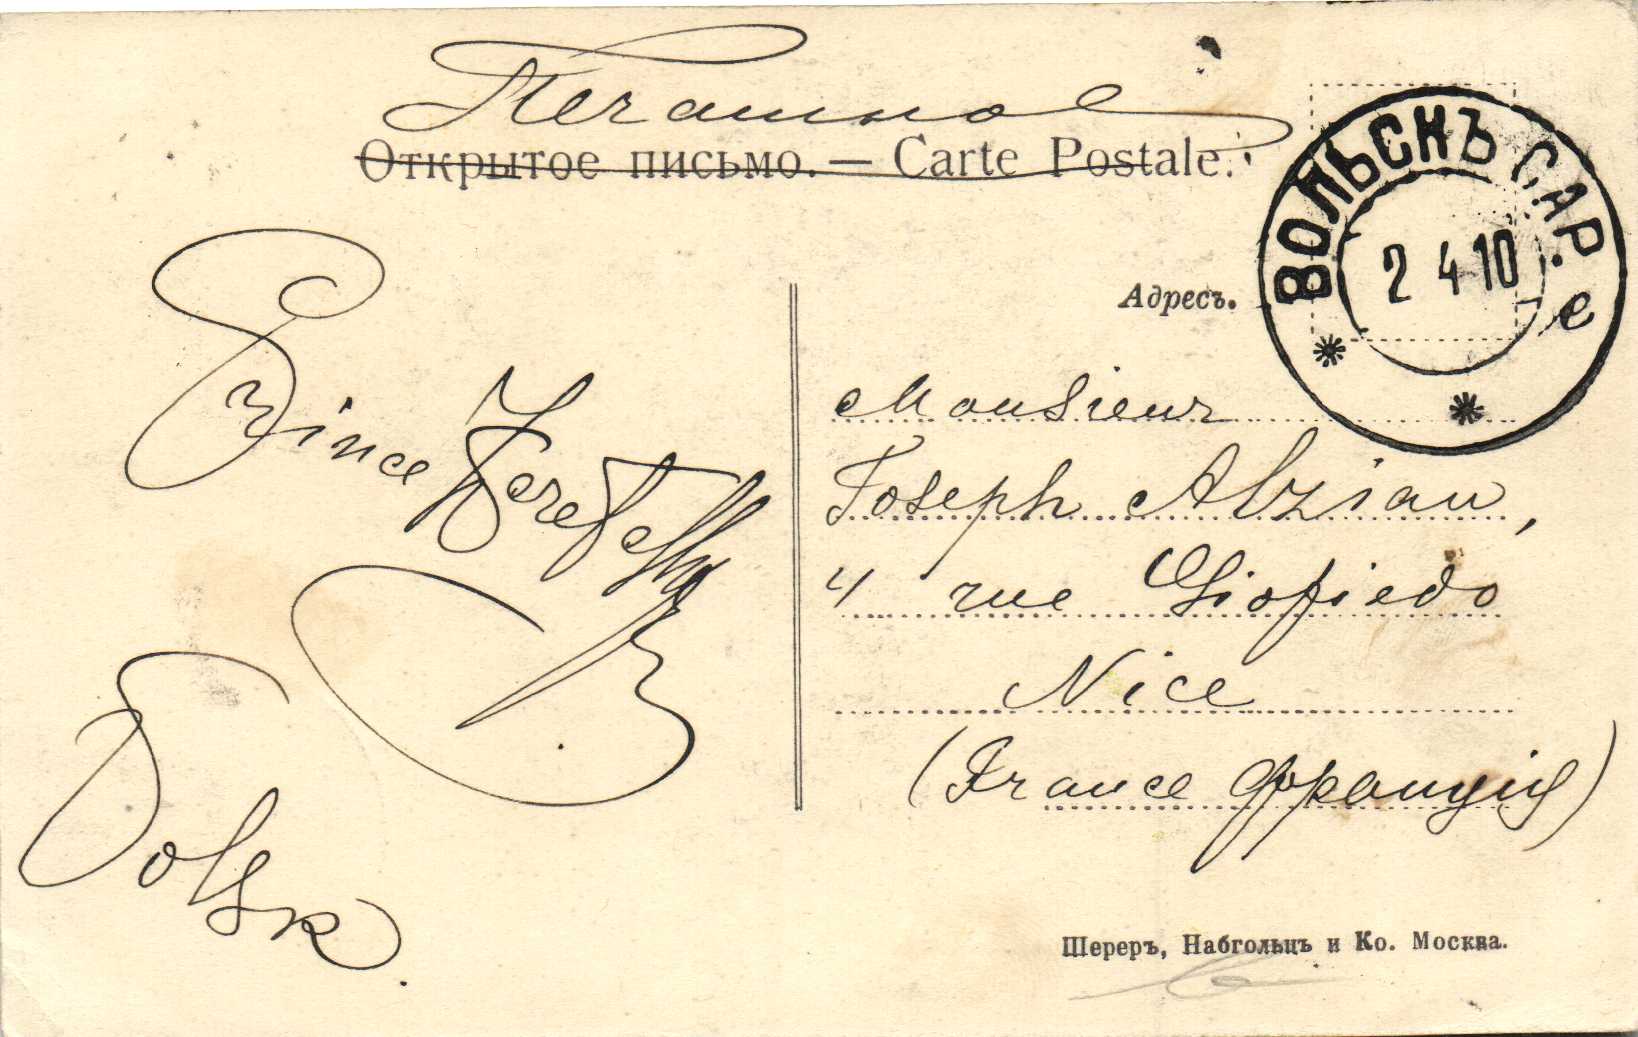 Печатное
Открытое письмо. — Carte Postale.
ВОЛЬСКЪ САР.
2 4 10
е
Адресъ.
Prince
Volsk.
Monsieur
Joseph Alziau,
4 rue Giofredo
Nice
(France Франція)
Шереръ, Набгольцъ и Ко. Москва.